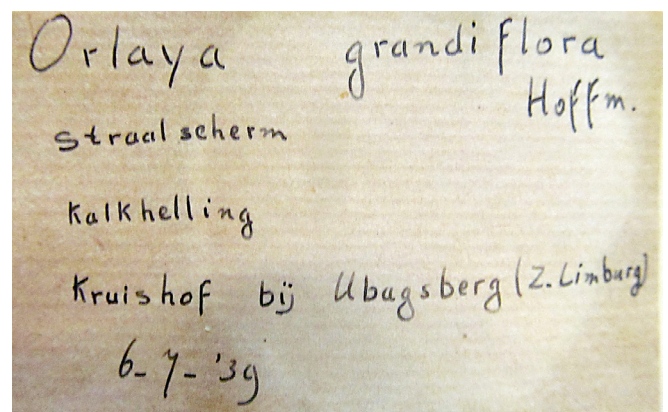 Orlaya grandiflora
Hoffm.
straalscherm
Kalkhelling
Kruishof bij Ubagsberg (Z. Limburg)
6-7-'39